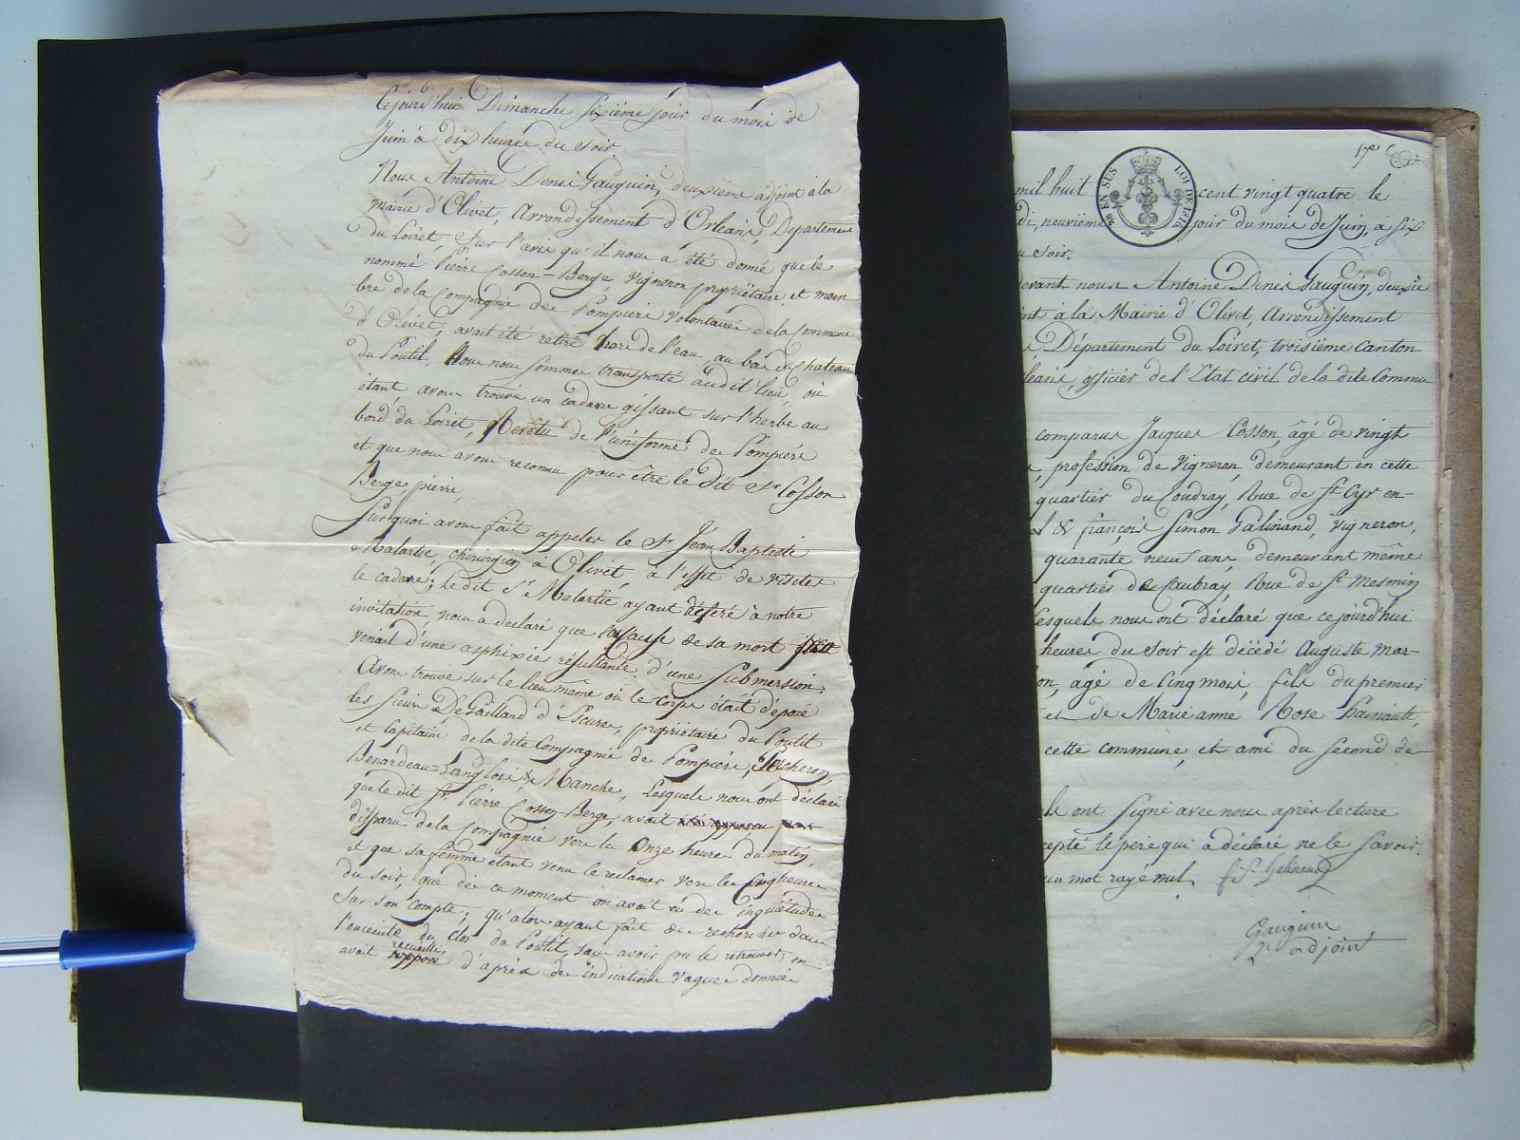 Ce jourd'hui Dimanche sixième jour du mois de
Juin à dix heures du soir
Nous Antoine Denis Gauguin, deuxième adjoint à la
mairie d'Olivet, arrondissement d'Orléans, Département
du Loiret, sur l'avis qu'il nous a été donné que le
nommé Pierre Cosson-Berge vigneron propriétaire et mem
bre de la Compagnie des Pompiers Volontaires de la Commune
d'Olivet, avait été retiré hors de l'eau, au bas du chateau
du Poutil, Nous nous sommes transporté audit lieu, où
étant, avons trouvé un cadavre gissant sur l'herbe au
bord du Loiret, Revêtu de l'uniforme de Pompiers
et que nous avons reconnu pour être le dit Sr Cosson
Berge pierre,
Surquoi avons fait appeler le Sr Jean Baptiste
Malartie, chirurgien à Olivet, à l'effet de visiter
le cadavre; le dit Sr Malartie ayant déféré à notre
invitation, nous a déclaré que la cause de sa mort
venait d'une asphixie résultante d'une submersion;
Avons trouvé sur le lieu même où le corps était déposé
les sieurs De Gailland d'Escures, propriétaire du Poutil
et Capitaine de la dite Compagnie de Pompiers,
Benardeau Langlois & Manche, Lesquels nous ont déclaré
que le dit Sr Pierre Cosson Berge, avait
disparu de la Compagnie vers les Onze heures du matin,
et que sa femme etant venu le reclamer vers les cinq heures
du soir, que dès ce moment on avait eu des inquiétudes
sur son compte; qu'alors ayant fait des recherches dans
l'enceinte du clos du Poutil, sans avoir pu le retrouver, on
recueilli
avait supposé d'après des indications vagues données
17e
mil huit cent vingt quatre le
di, neuvième jour du mois de Juin, à six
u soir.
evant nous Antoine Denis Gauguin, deuxiè
int à la Mairie d'Olivet, Arrondissement
, Département du Loiret, troisième Canton
léans, officier de l'Etat civil de la dite Commu
comparus Jacques Cosson, âgé de vingt
, profession de Vigneron, demeurant en cette
quartier du Coudray, Rue de St Cyr en-
l & françois Simon Galinand, vigneron,
quarante neuf ans, demeurant même
quartier de Caubray, Rue de St mesmin
esquels nous ont déclaré que ce jourd'hui
heures du soir est décédé Auguste mar-
on, agé de Cinq mois, fils du premier
et de Marie anne Rose hainault,
cette commune, et ami du second de
ls ont signé avec nous après lecture
cepté le père qui a déclaré ne le savoir.
un mot rayé nul,
Gauguin
2e adjoint